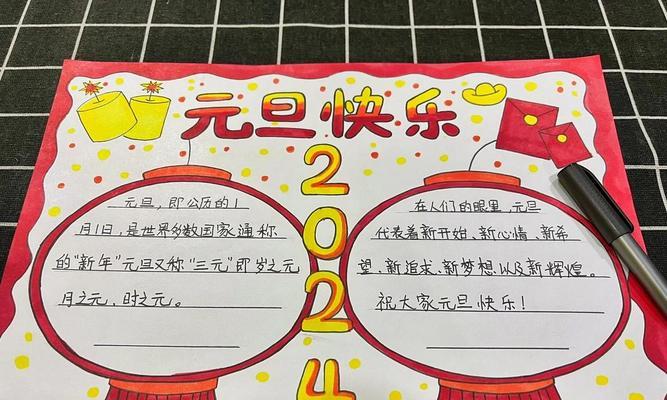 元旦快乐
2
0
2
4
元旦，即公历的1
月1日，是世界多数国家通称
的“新年”元旦又称“三元”即岁之元
月之元，时之元。
在人们的眼里，元旦
代表着新开始、新心情、新希
望、新追求、新梦想以及新辉煌。
祝大家元旦快乐！